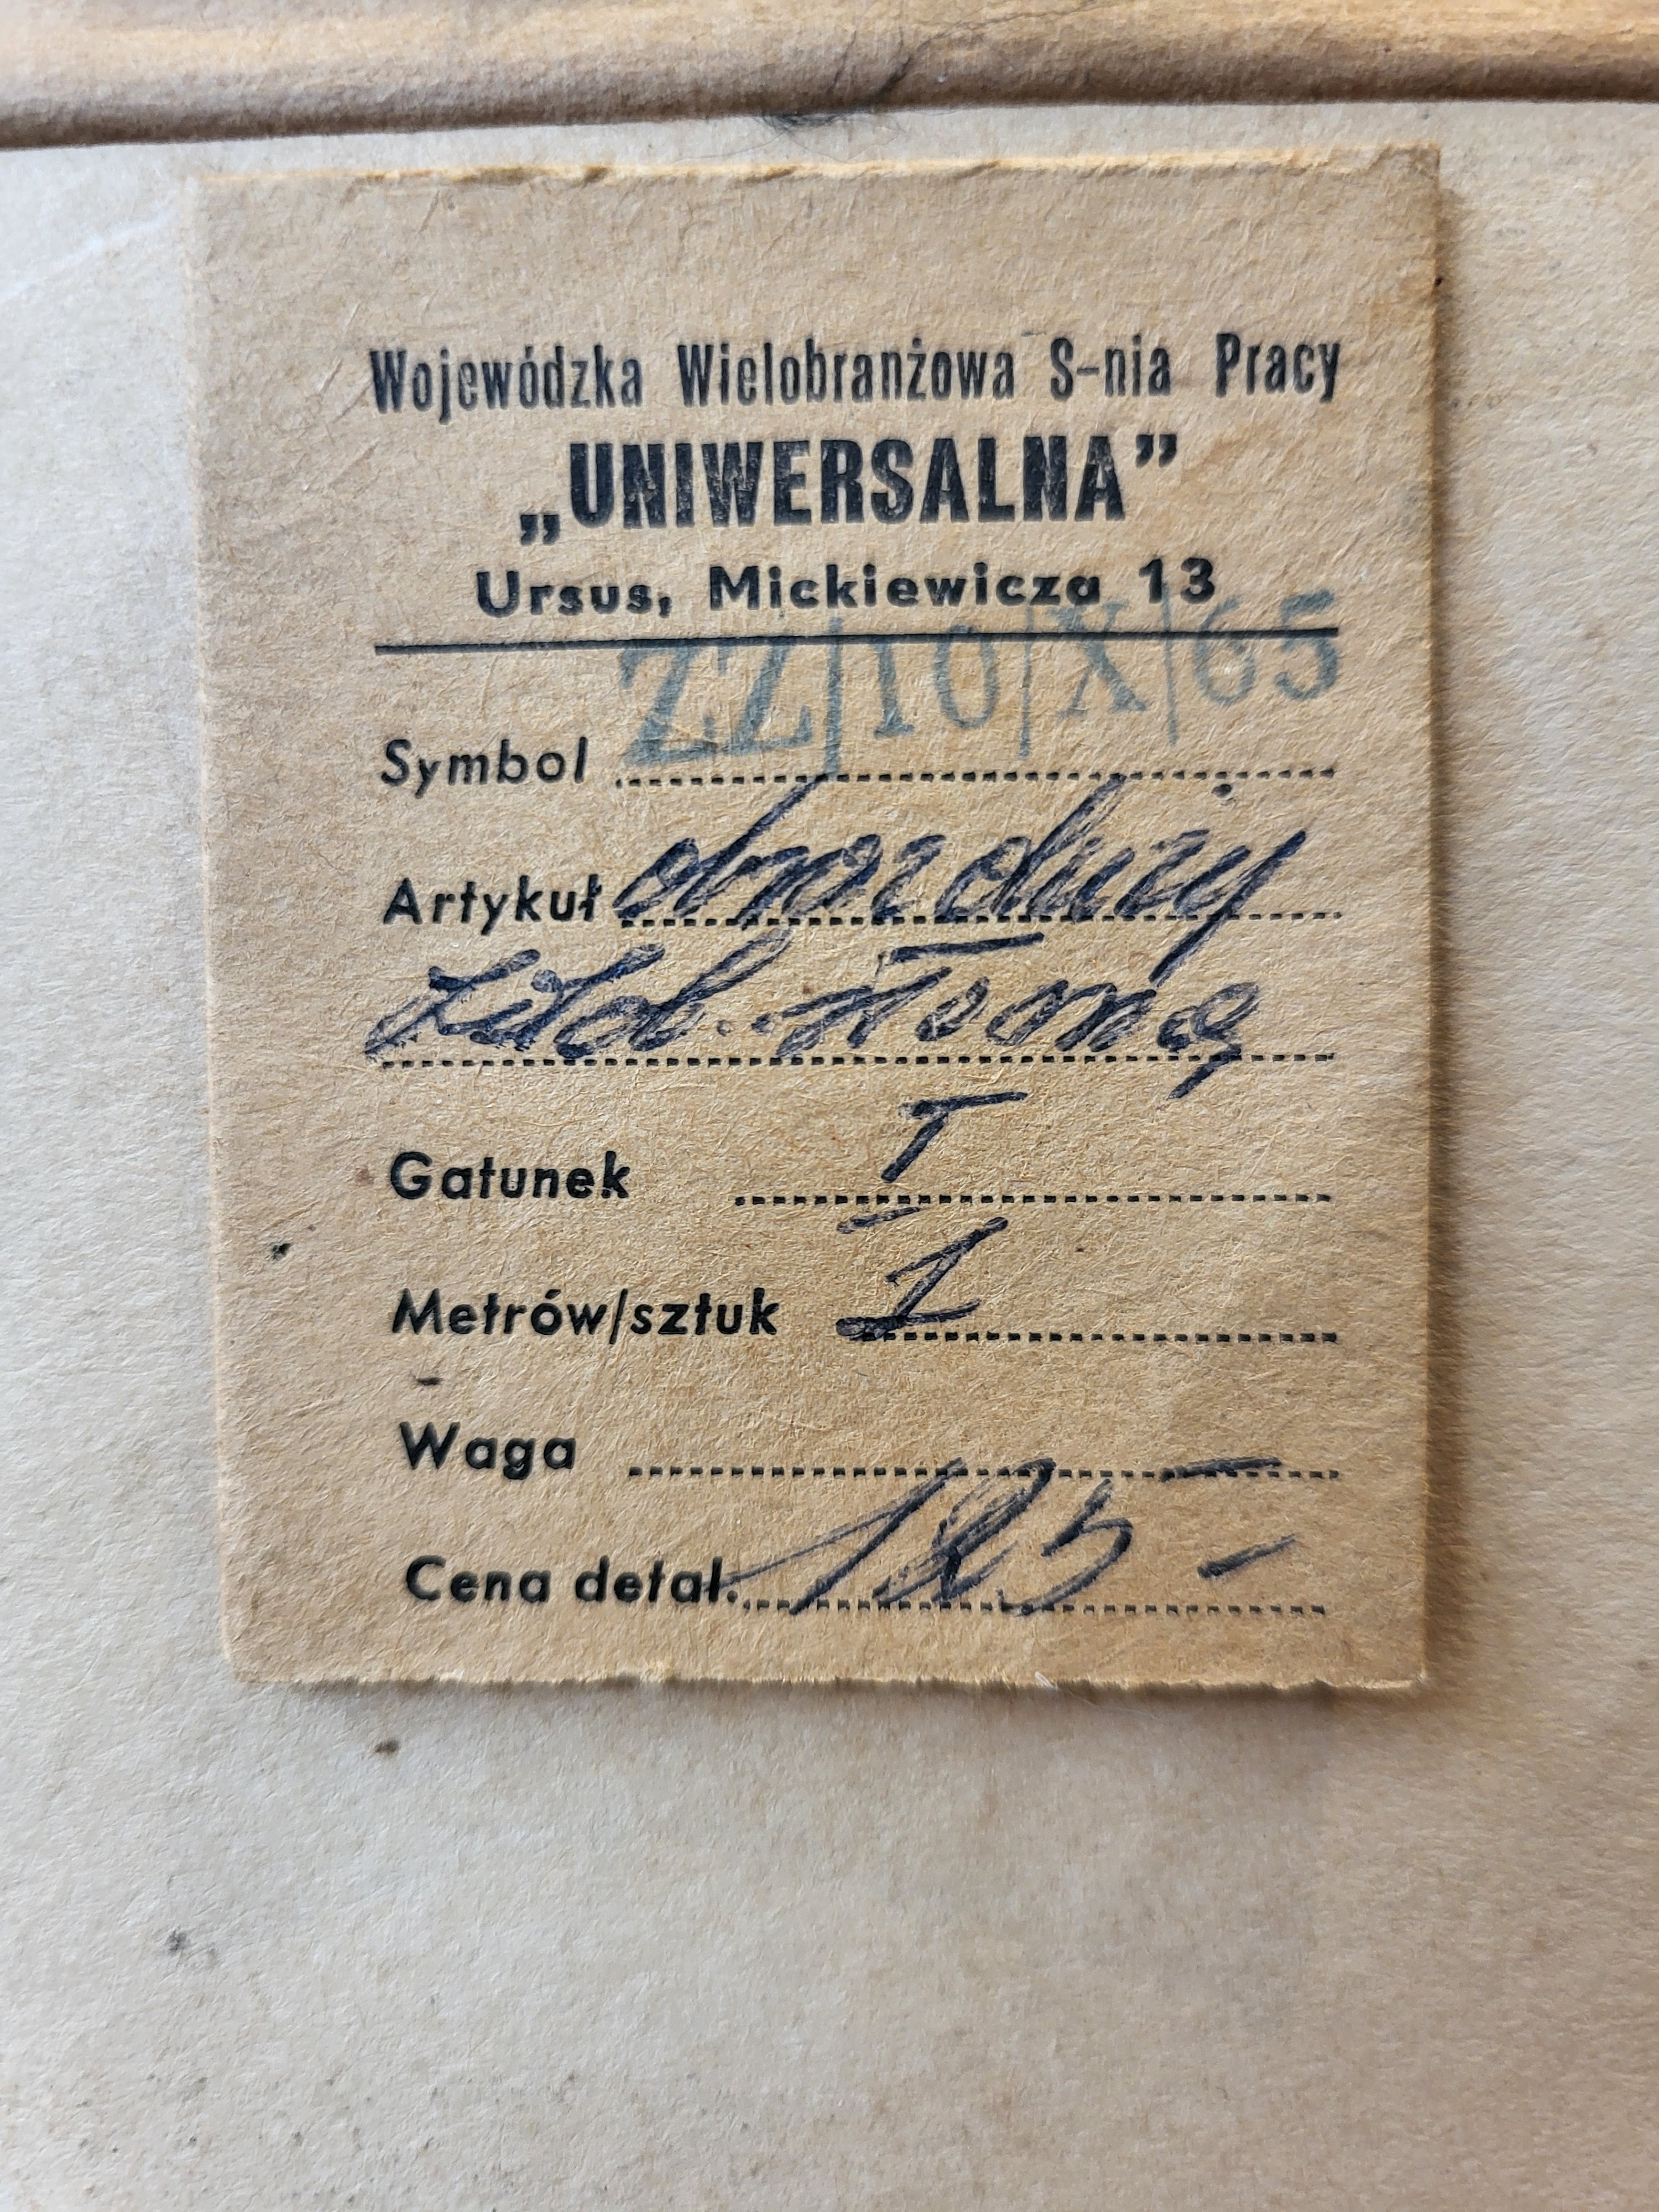 Wojewódzka Wielobranżowa S-nia Pracy
„UNIWERSALNA”
Ursus, Mickiewicza 13
Symbol ZZ/10/X/65
Artykuł obraz duży
zdob. słomą
Gatunek I
Metrów/sztuk 1
Waga
Cena detal. 125 -